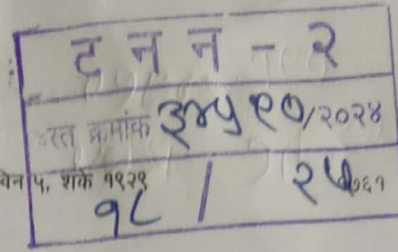 ट न न - २
दस्त क्रमांक ३४५९०/२०२४
५, शके १९२९
१८ / २५